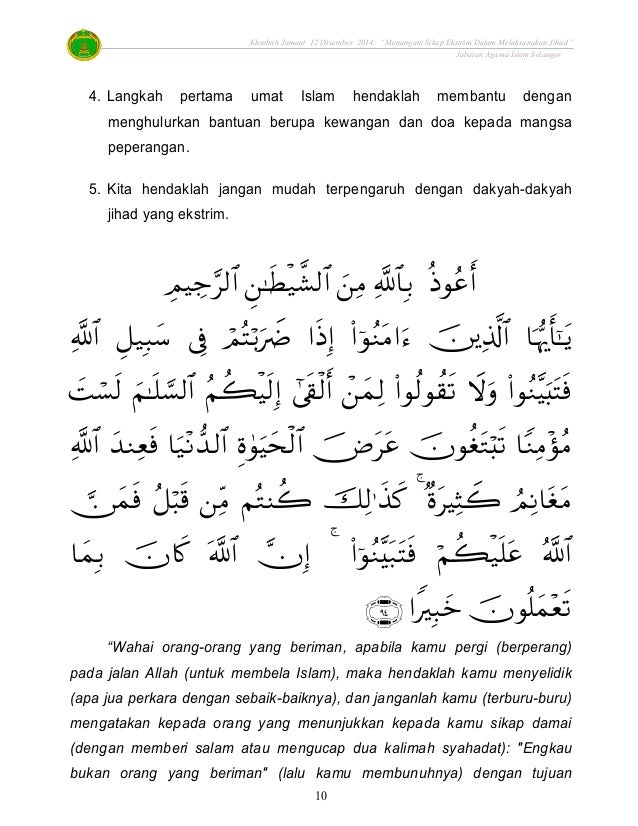 Khutbah Jumaat 12 Disember 2014: "Menangani Sikap Ekstrim Dalam Melaksanakan Jihad"
Jabatan Agama Islam Selangor
4. Langkah pertama umat Islam hendaklah membantu dengan
menghulurkan bantuan berupa kewangan dan doa kepada mangsa
peperangan.
5. Kita hendaklah jangan mudah terpengaruh dengan dakyah-dakyah
jihad yang ekstrim.
أَعُوذُ بِٱللَّهِ مِنَ ٱلشَّيْطَٰنِ ٱلرَّجِيمِ
يَٰٓأَيُّهَا ٱلَّذِينَ ءَامَنُوٓا۟ إِذَا ضَرَبْتُمْ فِى سَبِيلِ ٱللَّهِ
فَتَبَيَّنُوا۟ وَلَا تَقُولُوا۟ لِمَنْ أَلْقَىٰٓ إِلَيْكُمُ ٱلسَّلَٰمَ لَسْتَ
مُؤْمِنًا تَبْتَغُونَ عَرَضَ ٱلْحَيَوٰةِ ٱلدُّنْيَا فَعِندَ ٱللَّهِ
مَغَانِمُ كَثِيرَةٌ ۚ كَذَٰلِكَ كُنتُم مِّن قَبْلُ فَمَنَّ
ٱللَّهُ عَلَيْكُمْ فَتَبَيَّنُوٓا۟ ۚ إِنَّ ٱللَّهَ كَانَ بِمَا
تَعْمَلُونَ خَبِيرًا ٩٤
“Wahai orang-orang yang beriman, apabila kamu pergi (berperang)
pada jalan Allah (untuk membela Islam), maka hendaklah kamu menyelidik
(apa jua perkara dengan sebaik-baiknya), dan janganlah kamu (terburu-buru)
mengatakan kepada orang yang menunjukkan kepada kamu sikap damai
(dengan memberi salam atau mengucap dua kalimah syahadat): "Engkau
bukan orang yang beriman" (lalu kamu membunuhnya) dengan tujuan
10